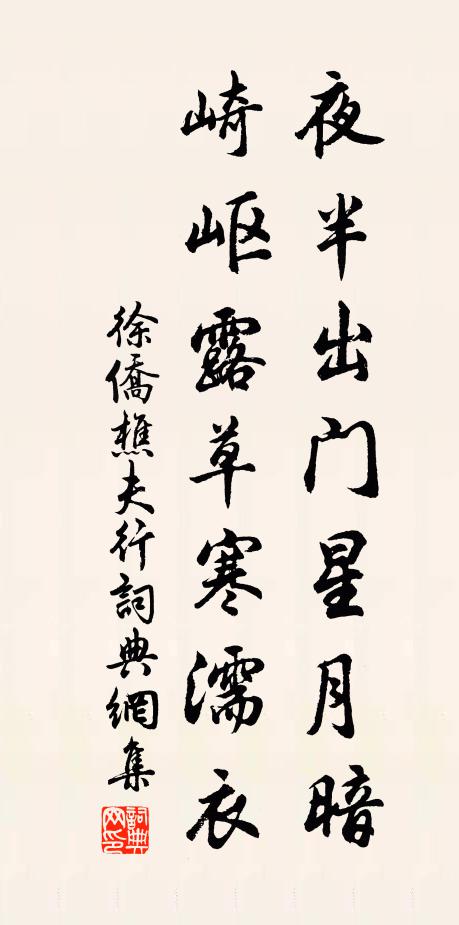 夜半出门星月暗
崎岖露草寒濡衣
徐僑樵夫行詞典網集
詞典网印